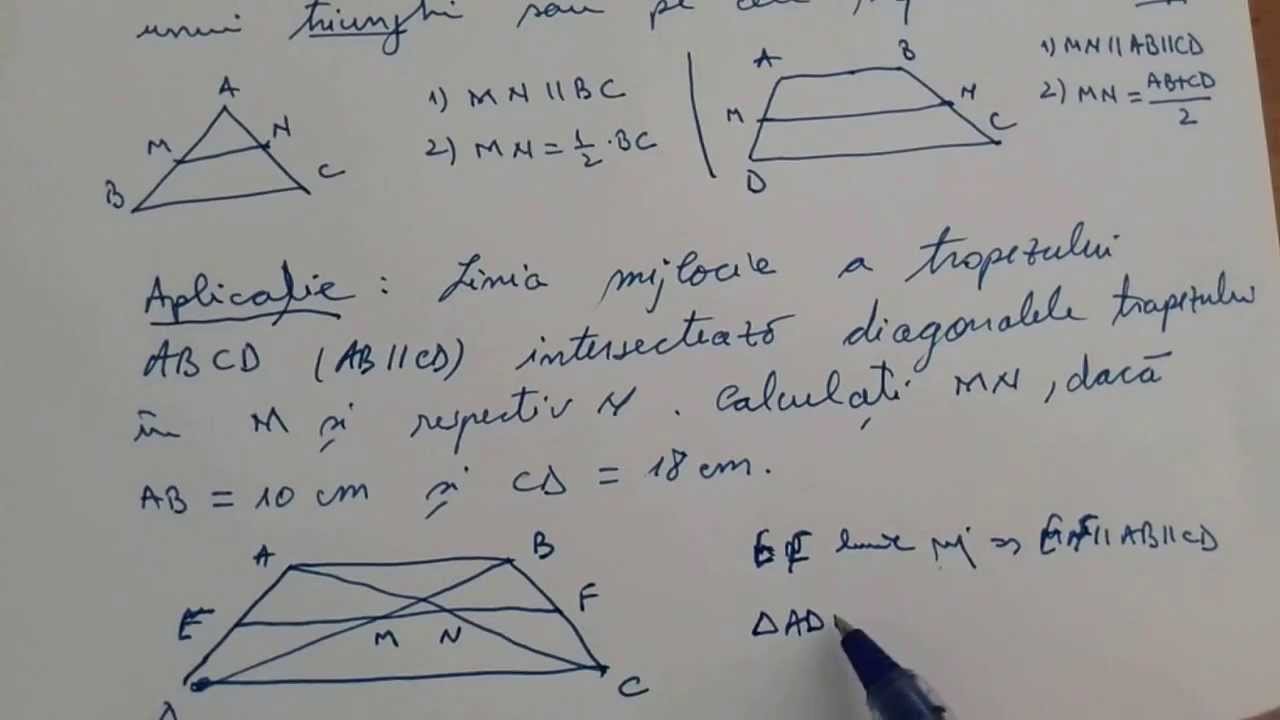 unui triunghi sau pe
A
M N
B C
1) MN || BC
2) MN = 1/2 · BC
A B
M N
D C
1) MN || AB || CD
2) MN = AB+CD/2
Aplicație : Linia mijlocie a trapezului
ABCD (AB || CD) intersectează diagonalele trapezului
în M și respectiv N . Calculați MN , dacă
AB = 10 cm și CD = 18 cm.
A B
E F
M N
C
EF linie mij => EF || AB || CD
△AD